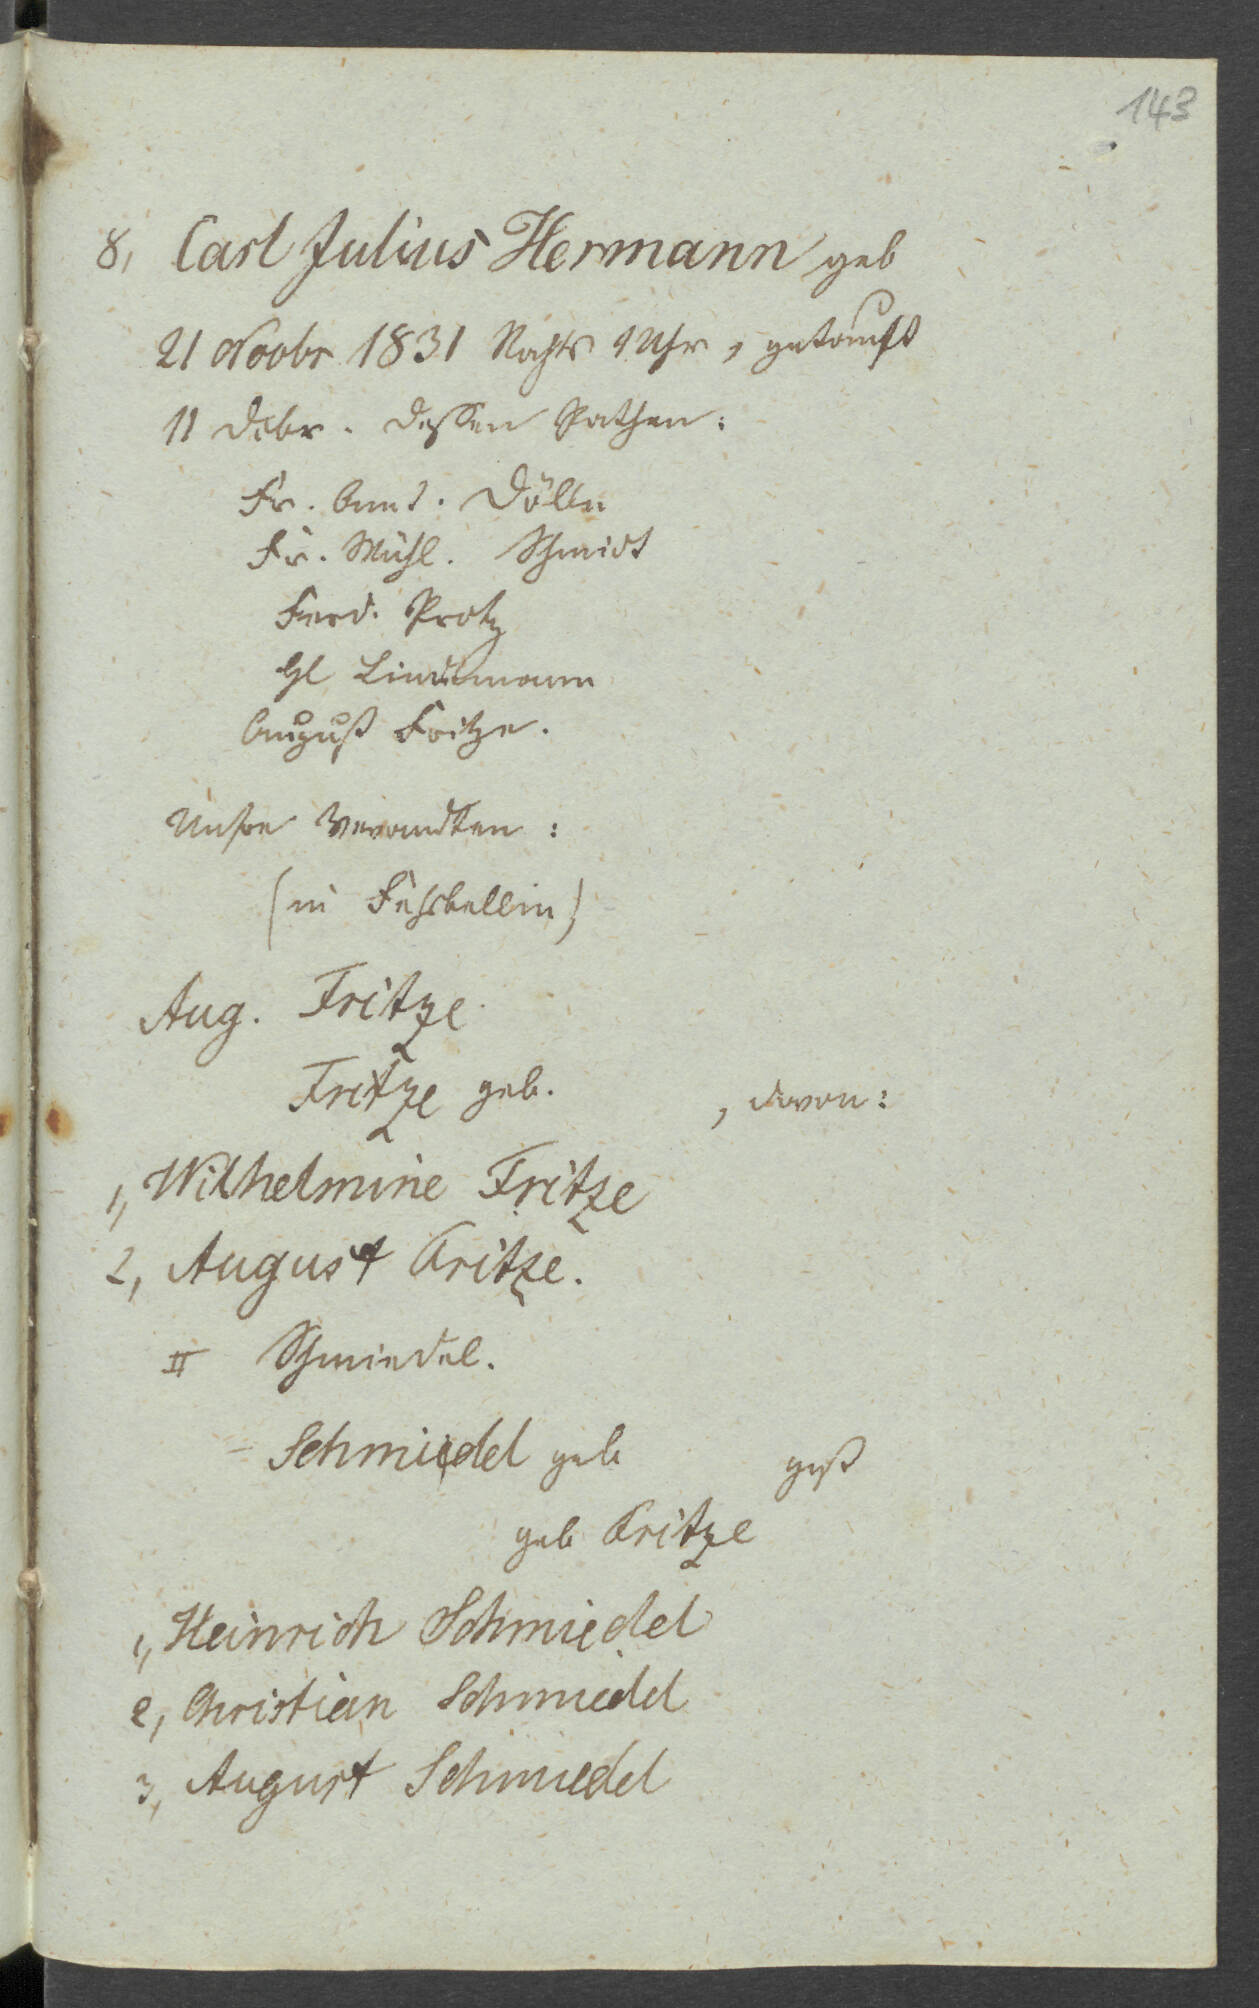 143
8, Carl Julius Hermann geb
21 Novbr 1831 Nachts 1 Uhr, getauft
11 Decbr. dessen Pathen:
Fr. Amt. Dölle
Fr. Mühl. Schmidt
Ferd. Protz
Lindemann
August Fritze.
Unsre Verwandten:
(in Fehrbellin)
Aug. Fritze
Fritze geb. , davon:
1, Wilhelmine Fritze
2, August Fritze.
II Schmiedel.
- Schmiedel geb gest
geb Fritze
1, Heinrich Schmiedel
2, Christian Schmiedel
3, August Schmiedel